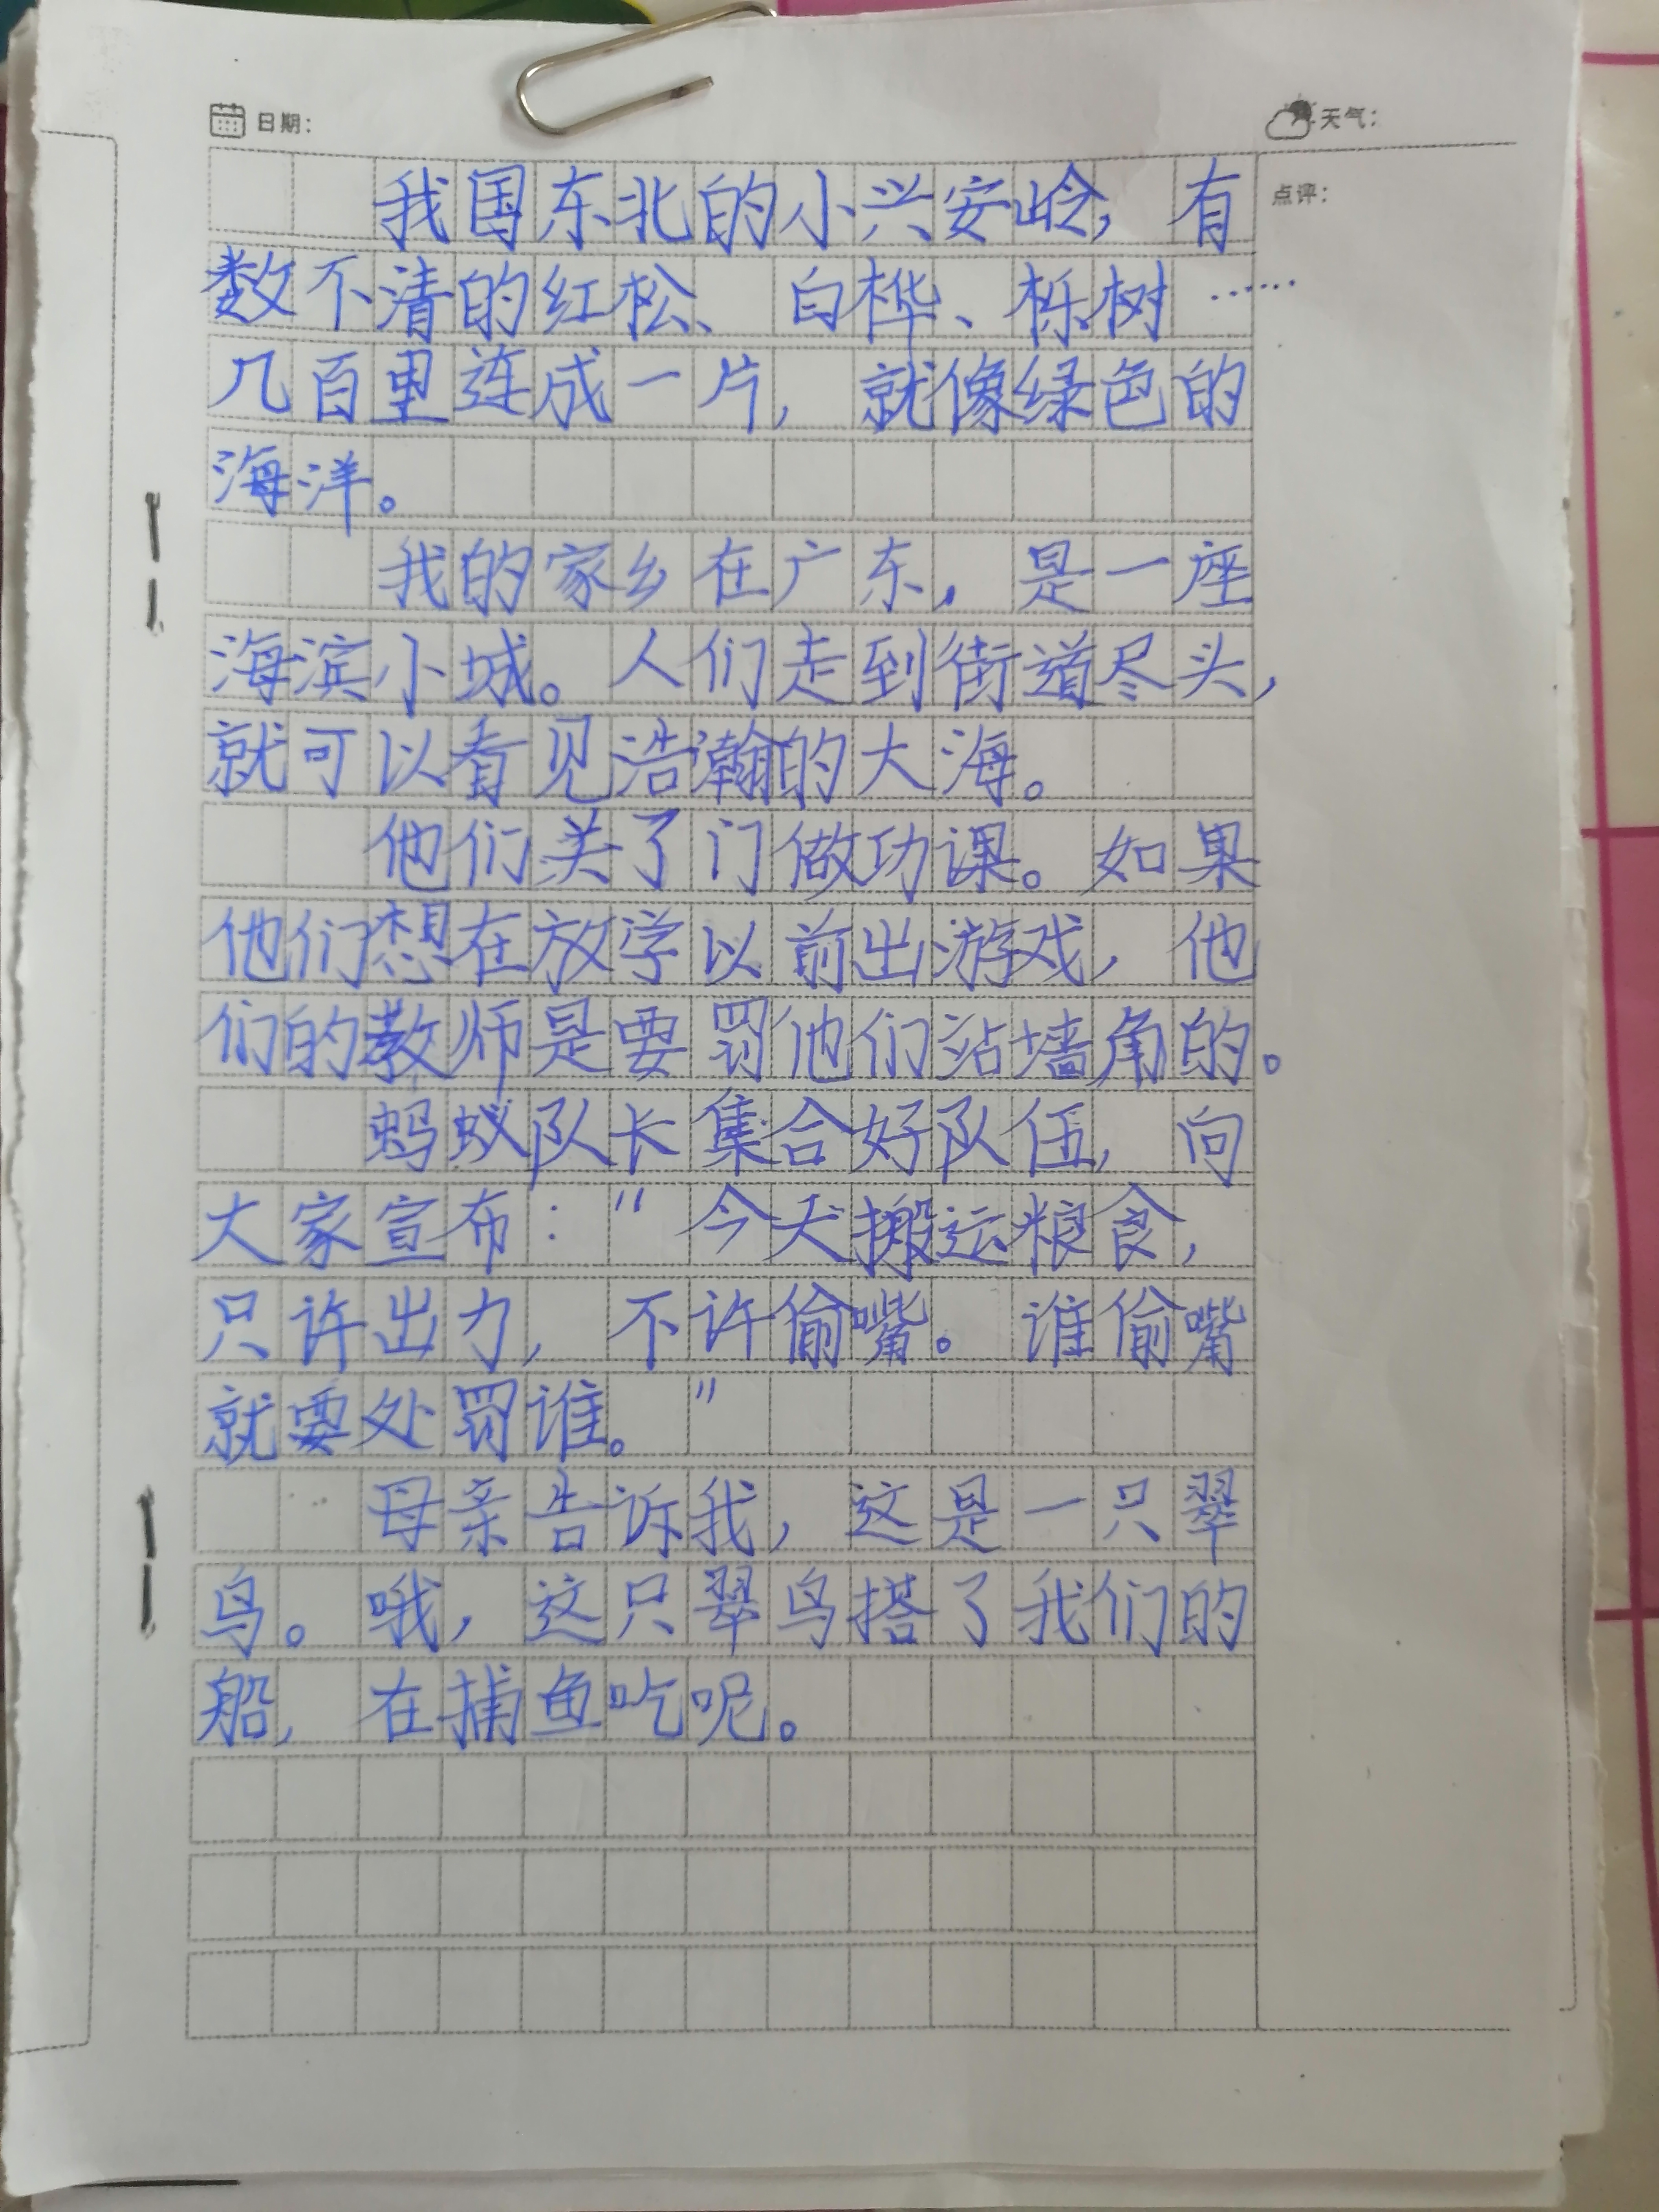 日期：
天气：
点评：
我国东北的小兴安岭，有
数不清的红松、白桦、栎树……
几百里连成一片，就像绿色的
海洋。
我的家乡在广东，是一座
海滨小城。人们走到街道尽头，
就可以看见浩瀚的大海。
他们关了门做功课。如果
他们想在放学以前出游戏，他
们的教师是要罚他们站墙角的。
蚂蚁队长集合好队伍，向
大家宣布：“今天搬运粮食，
只许出力，不许偷嘴。谁偷嘴
就要处罚谁。”
母亲告诉我，这是一只翠
鸟。哦，这只翠鸟搭了我们的
船，在捕鱼吃呢。